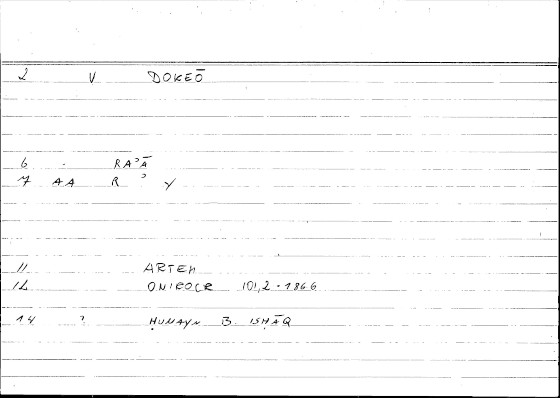 2 V DOKEŌ
6 - RAʾĀ
7 AA R ʾ Y
11 ARTEM
12 ONIROCR 101,2 - 1866
14 ? ḤUNAYN B. ISḤĀQ